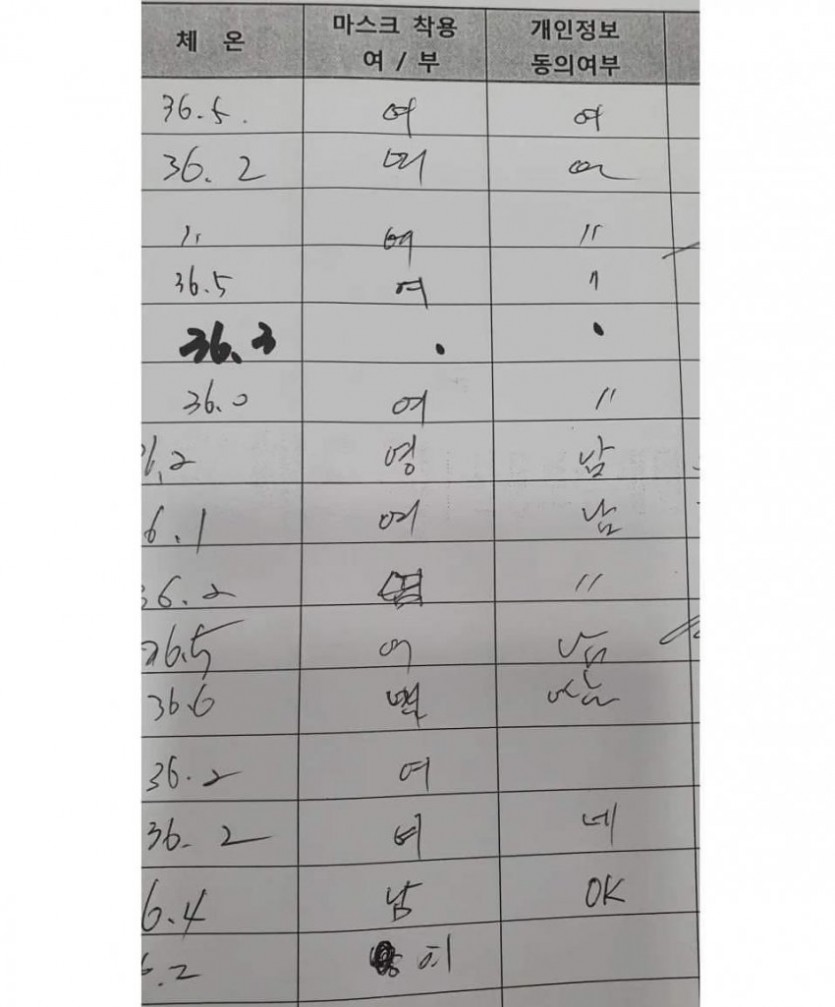 체 온 마스크 착용 여 / 부 개인정보 동의여부
36.5. 여 여
36.2 여 여
〃 여 〃
36.5 여 〃
36.3 . .
36.0 여 〃
6.2 영 남
6.1 여 남
36.2 〃
36.5 여 남
36.6
36.2 여
36.2 여 네
6.4 남 OK
.2